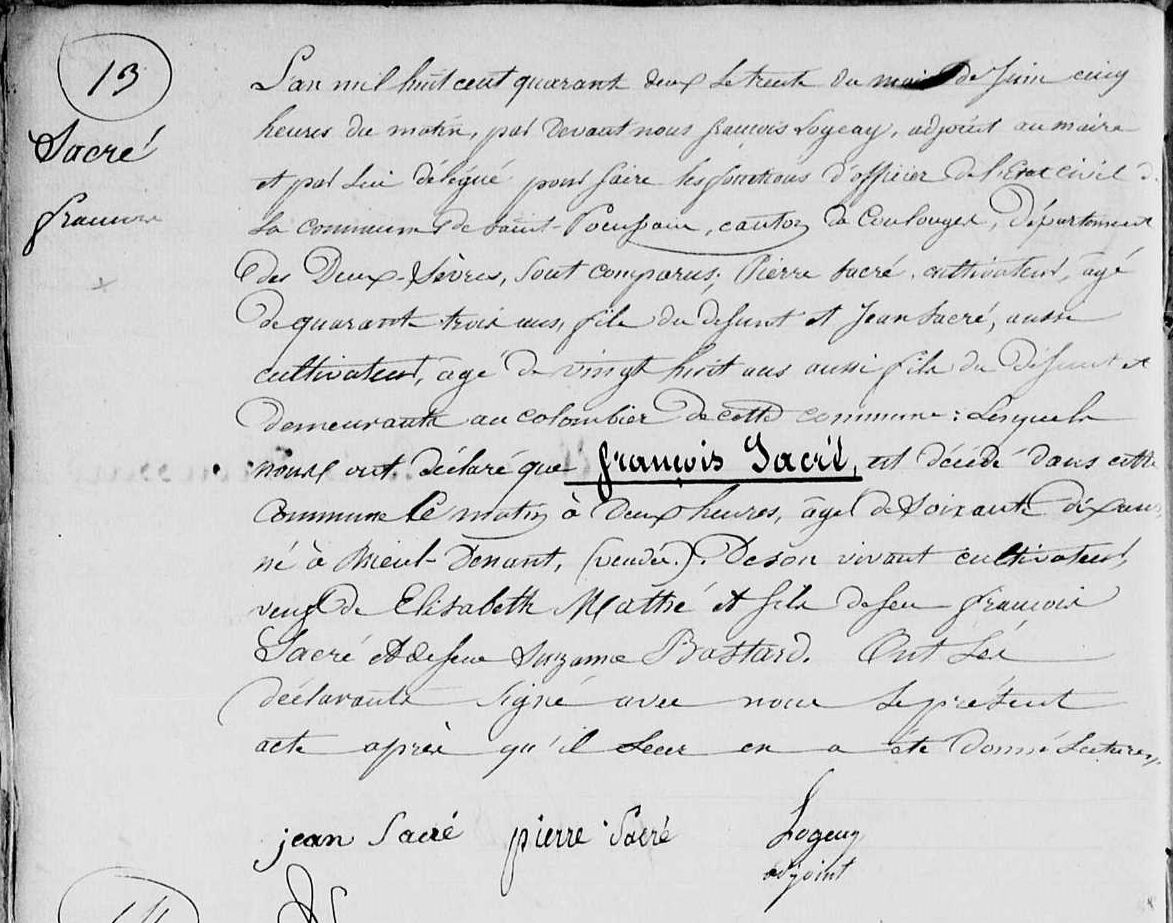 13
Sacré
françois
L'an mil huit cent quarante deux le trente du mois de Juin cinq
heures du matin, par devant nous françois Logeay, adjoint au maire
et par lui délégué pour faire les fonctions d'officier de l'Etat civil de
la commune de Saint-Pompain, canton de Coulonges, Département
des Deux-Sèvres, sont comparus, Pierre Sacré, cultivateur, âgé
de quarante trois ans, fils du defunt et Jean Sacré, aussi
cultivateur, âgé de vingt huit ans aussi fils du Défunt et
demeurants au colombier de cette commune : Lesquels
nous ont déclaré que françois Sacré, est décédé dans cette
commune ce matin à deux heures, âgé de Soixante dix ans
né à Nieul-Denant, (vendée). De son vivant cultivateur,
veuf de Elisabeth Mathé et fils de feu françois
Sacré et de feue Suzanne Bastard. Ont Les
déclarants signé avec nous le présent
acte après qu'il leur en a été donné Lecture.
jean Sacré pierre Sacré Logeay
adjoint
14